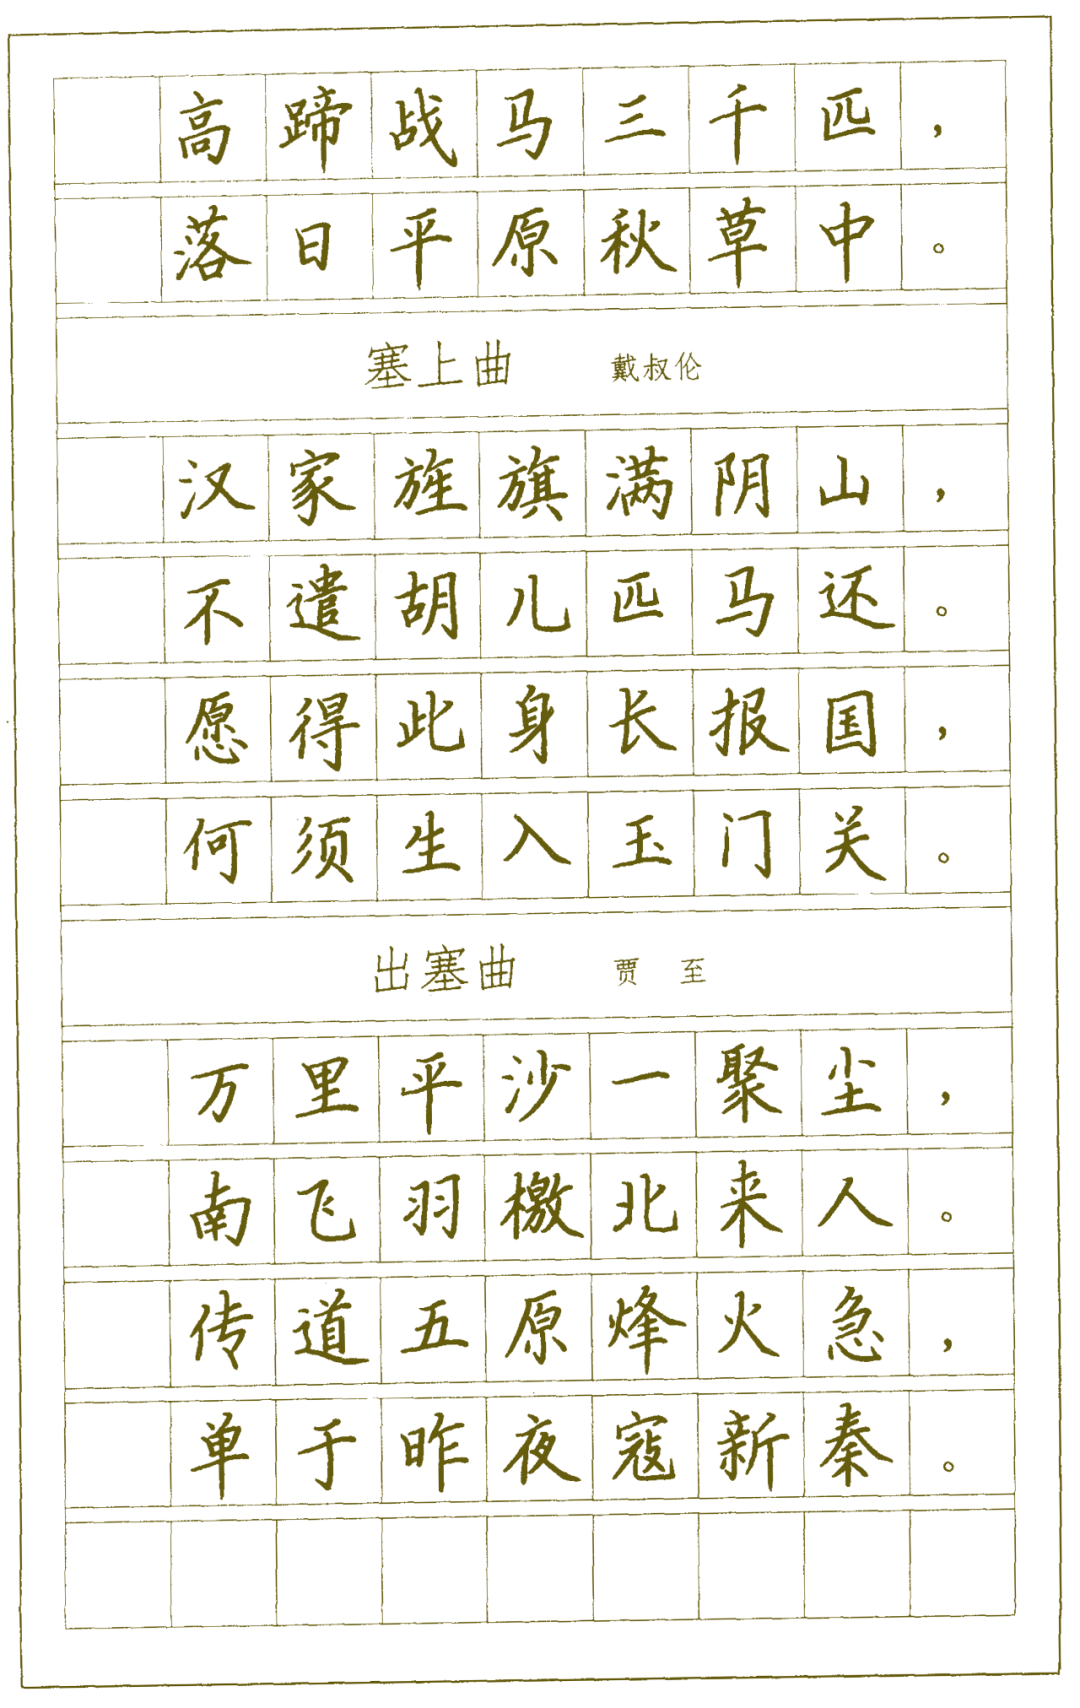 高蹄战马三千匹，
落日平原秋草中。
塞上曲 戴叔伦
汉家旌旗满阴山，
不遣胡儿匹马还。
愿得此身长报国，
何须生入玉门关。
出塞曲 贾至
万里平沙一聚尘，
南飞羽檄北来人。
传道五原烽火急，
单于昨夜寇新秦。